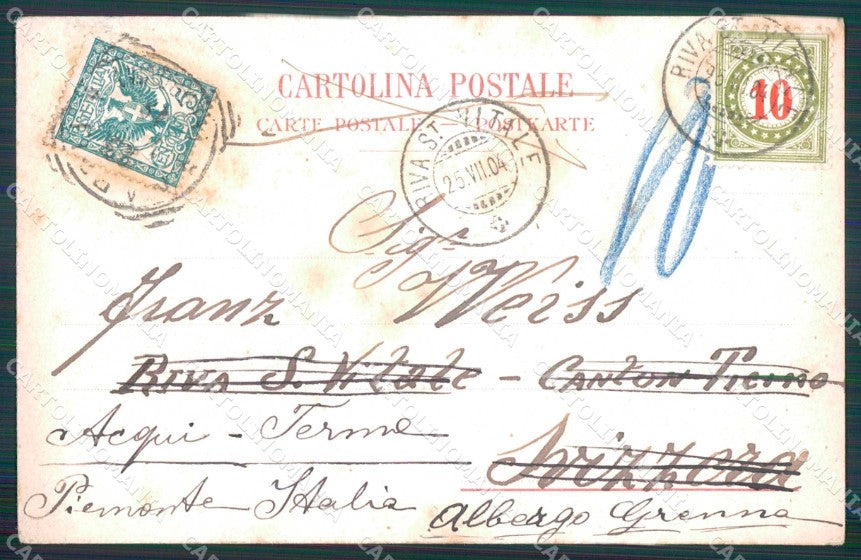 CARTOLINA POSTALE
CARTE POSTALE - POSTKARTE
RIVA ST. VITALE
25.VII.04
RIVA ST. VITALE
10
10
Sigr
Franz Weiss
RIVA S. Vitale - CANTON Ticino
Svizzera
Acqui - Terme
Piemonte Italia
Albergo Grenna
CARTOLINOMANIA